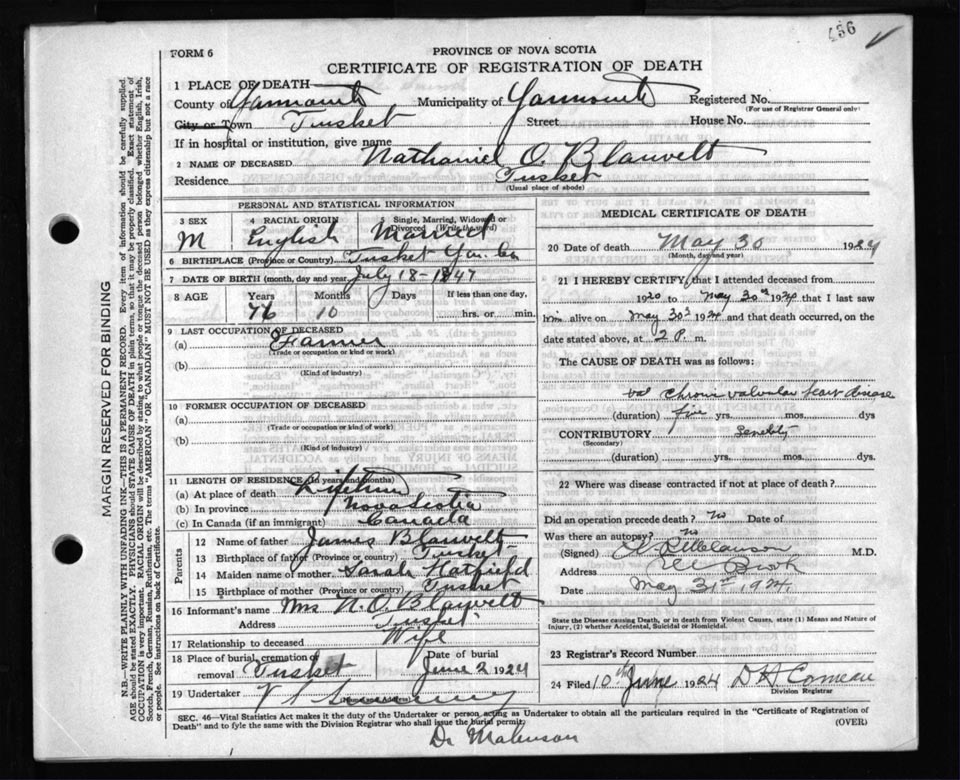 436
FORM 6
PROVINCE OF NOVA SCOTIA
CERTIFICATE OF REGISTRATION OF DEATH
1 PLACE OF DEATH
County of Yarmouth Municipality of Yarmouth Registered No.
(For use of Registrar General only)
City or Town Tusket Street House No.
If in hospital or institution, give name
2 NAME OF DECEASED Nathaniel O. Blauvelt
Residence Tusket
(Usual place of abode)
PERSONAL AND STATISTICAL INFORMATION
3 SEX M
4 RACIAL ORIGIN English
5 Single, Married, Widowed or Divorced (Write the word) Married
6 BIRTHPLACE (Province or Country) Tusket Yar. Co
7 DATE OF BIRTH (month, day and year) July 18 - 1847
8 AGE Years Months Days If less than one day,
76 10 hrs. or min.
9 LAST OCCUPATION OF DECEASED
(a) Farmer
(Trade or occupation or kind or work)
(b)
(Kind of industry)
10 FORMER OCCUPATION OF DECEASED
(a)
(Trade or occupation or kind of work)
(b)
(Kind of industry)
11 LENGTH OF RESIDENCE (in years and months)
(a) At place of death Lifetime
(b) In province Nova Scotia
(c) In Canada (if an immigrant) Canada
Parents
12 Name of father James Blauvelt
13 Birthplace of father (Province or country) Tusket
14 Maiden name of mother Sarah Hatfield
15 Birthplace of mother (Province or country) Tusket
16 Informant's name Mrs N. O. Blauvelt
Address Tusket
17 Relationship to deceased Wife
18 Place of burial, cremation or removal Tusket Date of burial June 2 1924
19 Undertaker
MEDICAL CERTIFICATE OF DEATH
20 Date of death May 30 1924
(Month, day and year)
21 I HEREBY CERTIFY, that I attended deceased from
1920 to May 30th 1924 that I last saw
him alive on May 30th 1924 and that death occurred, on
date stated above, at 2 P. m.
The CAUSE OF DEATH was as follows:
Chronic valvular heart disease
(duration) five yrs. mos. dys
CONTRIBUTORY Senility
(Secondary)
(duration) yrs. mos. dys.
22 Where was disease contracted if not at place of death?
Did an operation precede death? No Date of
Was there an autopsy? No
(Signed) M.D.
Address
Date May 31st 1924.
State the Disease causing Death, or in death from Violent Causes, state (1) Means and Nature of
Injury, (2) whether Accidental, Suicidal or Homicidal.
23 Registrar's Record Number
24 Filed 10th June 1924 D H Comeau
Division Registrar
SEC. 46—Vital Statistics Act makes it the duty of the Undertaker or person acting as Undertaker to obtain all the particulars required in the "Certificate of Registration of
Death" and to fyle the same with the Division Registrar who shall issue the burial permit. (OVER)
MARGIN RESERVED FOR BINDING
N.B.—WRITE PLAINLY WITH UNFADING INK—THIS IS A PERMANENT RECORD. Every item of information should be carefully supplied.
AGE should be stated EXACTLY. PHYSICIANS should STATE CAUSE OF DEATH in plain terms, so that it may be properly classified. Exact statement of
OCCUPATION is very important. RACIAL ORIGIN will be described by stating to what people or tongue the deceased person belonged whether English, Irish,
Scotch, French, German, Russian, Ruthenian, etc. The terms "AMERICAN" OR "CANADIAN" MUST NOT BE USED as they express citizenship but not a race
or people. See instructions on back of Certificate.